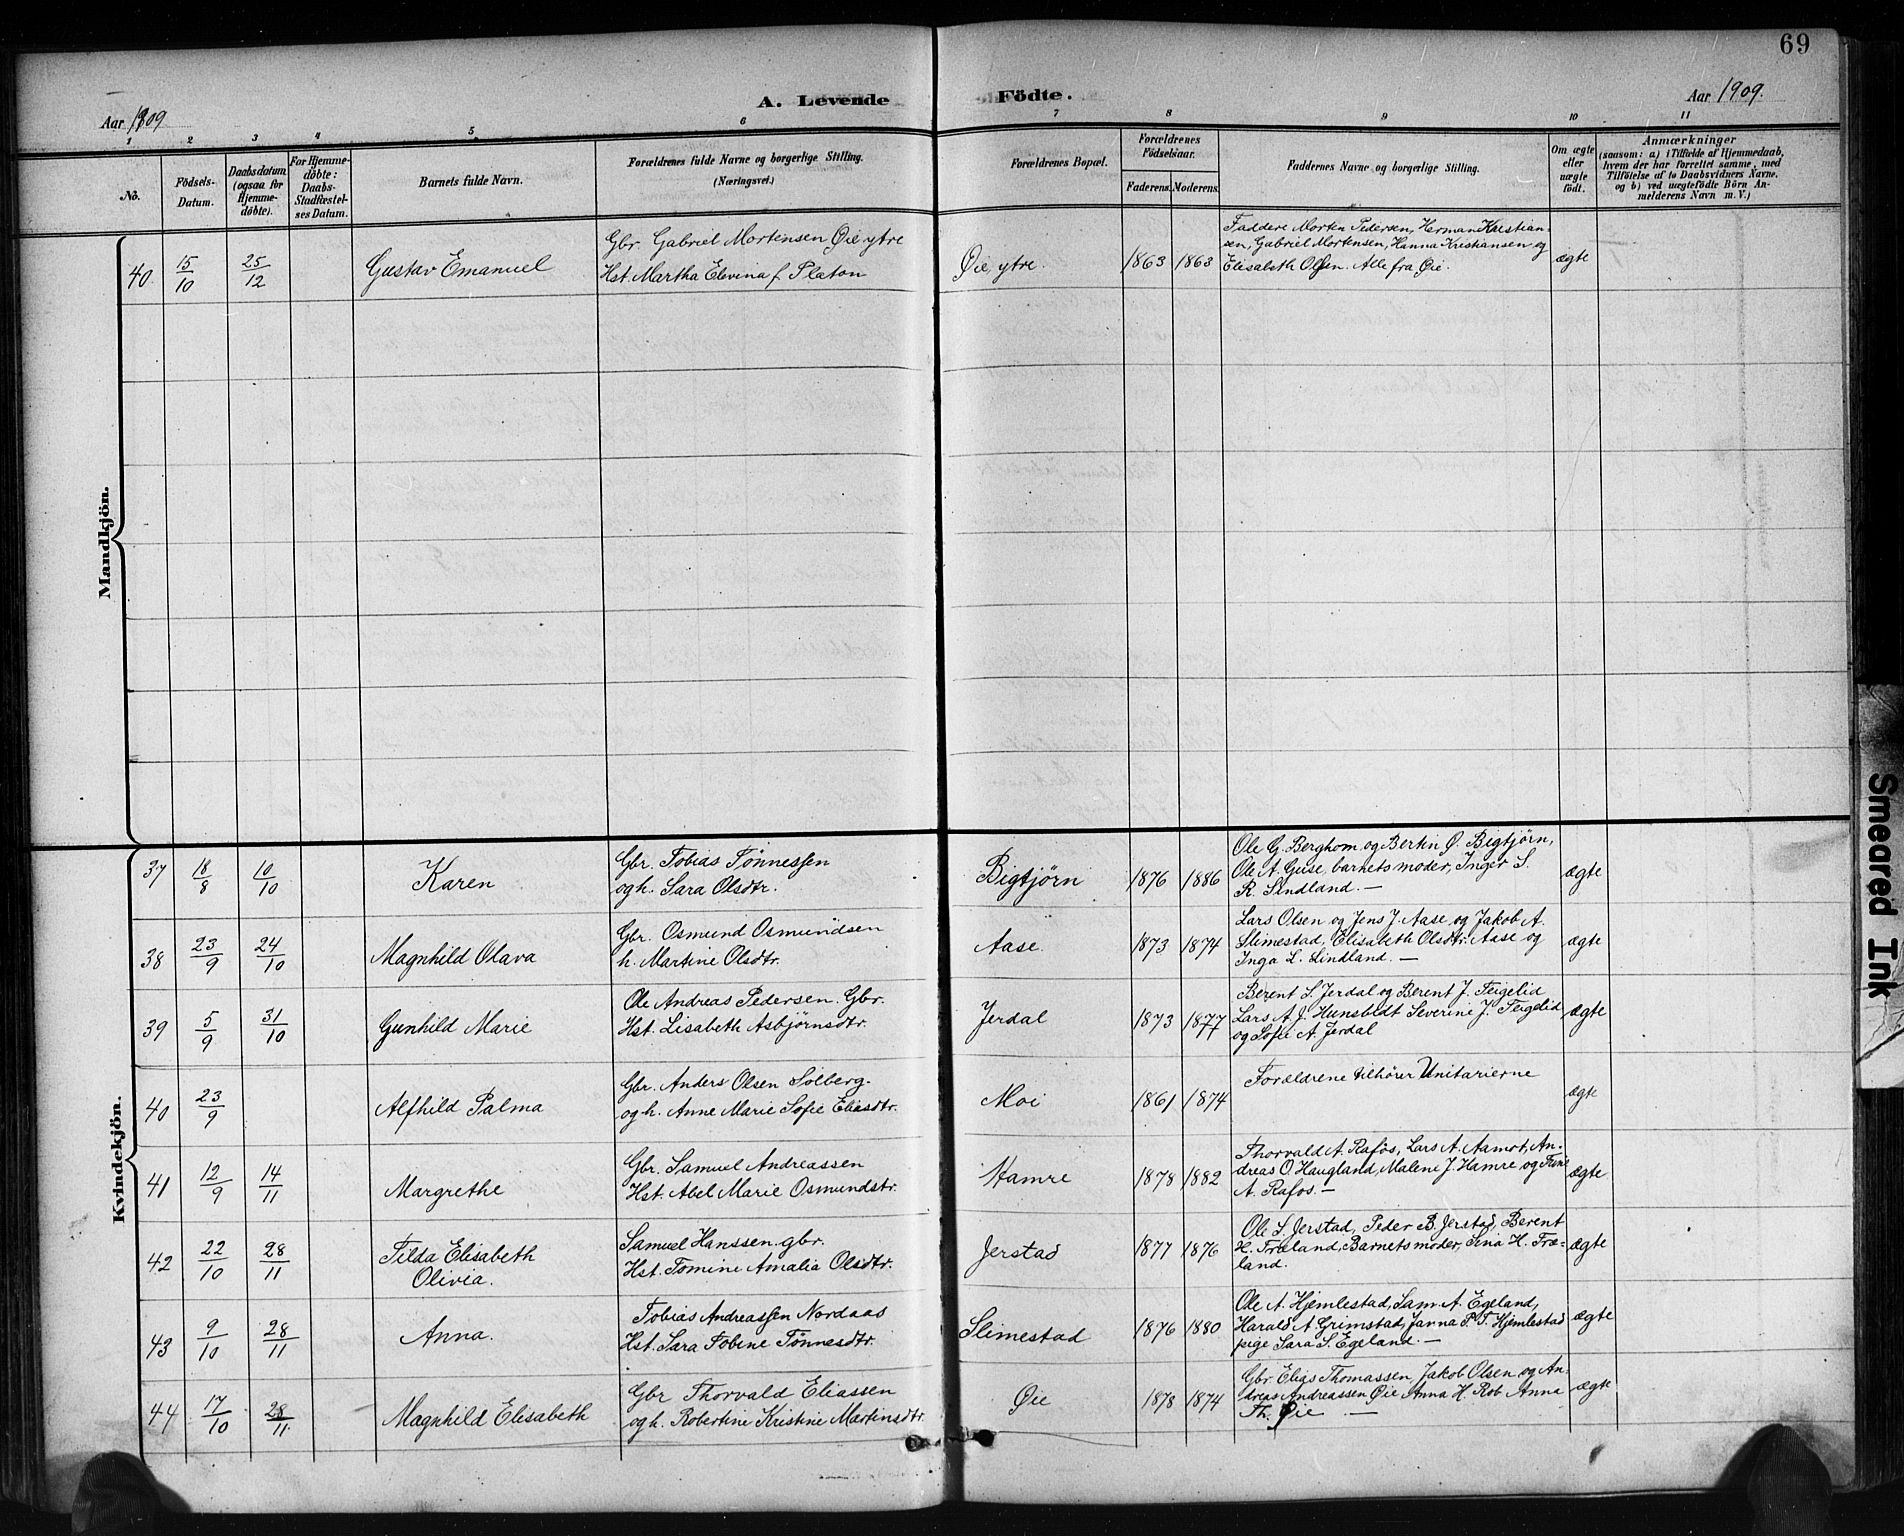 69
Aar 1909
A. Levende
Födte.
Aar 1909.
1 2 3 4 5 6 7 8 9 10 11
No.
Födsels-
Datum.
Daabsdatum
(ogsaa for
Hjemme-
döbte).
For Hjemme-
döbte:
Daabs-
Stadfæstel-
ses Datum.
Barnets fulde Navn.
Forældrenes fulde Navne og borgerlige Stilling.
(Næringsvei.)
Forældrenes Bopæl.
Forældrenes
Födselsaar.
Faderens. Moderens.
Faddernes Navne og borgerlige Stilling.
Om ægte
eller
uægte
födt.
Anmærkninger
(saasom: a) i Tilfælde af Hjemmedaab,
hvem der har forrettet samme, med
Tilföielse af to Daabsvidners Navne.
og b) ved uægtefödte Börn An-
melderens Navn m. V.)
Mandkjön.
40. 15/10 25/12 Gustav Emanuel
Gbr. Gabriel Mortensen Øie ytre
Hst. Martha Elevina f. Platon
Øie, ytre. 1863 1863
Faddere Morten Pedersen, Herman Kristian-
sen, Gabriel Mortensen, Hanna Kristiansen og
Elisabeth Olsen. Alle fra Øie.
ægte
Kvindekjön.
37 18/8 10/10 Karen
Gbr. Tobias Tønnessen
og h. Sara Olsdtr.
Bigtjørn 1876 1886
Ole G. Berghom og Bertin Ø. Bigtjørn,
Ole A. Guse, barnets moder, Inger S.
R. Lindland. —
ægte
38 23/9 24/10 Magnhild Olava
Gbr. Osmund Osmundsen
h. Martine Olsdtr.
Aase. 1873 1874
Lars Olsen og Jens J. Aase og Jakob A.
Slimestad, Elisabeth Olsdtr. Aase og
Inga L. Lindland. —
ægte
39 5/9 31/10 Gunhild Marie
Ole Andreas Pedersen. Gbr.
Hst. Lisabeth Asbjørnsdtr.
Jerdal 1873 1877
Berent S. Jerdal og Berent J. Feigelid
Lars A. J. Hunsbedt Severine J. Feigelid
og Sofie A. Jerdal
ægte
40 23/9 Alfhild Palma
Gbr. Anders Olsen Solberg.
og h. Anne Marie Sofie Eliasdtr.
Moi 1861 1874
Forældrene tilhører Unitarierne
ægte
41 12/9 14/11 Margrethe
Gbr. Samuel Andreassen
Hst. Abel Marie Osmundstr.
Hamre 1878 1882
Thorvald A. Rafos, Lars A. Aamot, An-
dreas O. Haugland, Malene J. Hamre og Tine
A. Rafos. —
ægte
42 22/10 28/11 Tilda Elisabeth
Olivia.
Samuel Hanssen. gbr.
Hst. Tomine Amalia Olsdtr.
Jerstad 1877 1876
Ole S. Jerstad, Peder B. Jerstad, Berent
H. Fræland, Barnets moder, Sina H. Fræ-
land.
ægte
43 9/10 28/11 Anna.
Tobias Andreassen Nordaas
Hst. Sara Tobine Tønnesdtr.
Slimestad 1876 1880
Ole A. Hjemlestad, Sam. A. Egeland,
Harald A. Grimstad, Janna P. T. Hjemlestad
pige Sara S. Egeland. —
ægte
44 17/10 28/11. Magnhild Elisabeth
Gbr Thorvald Eliassen
og h. Robertine Kristine Martinsdtr.
Øie 1878 1874
Gbr. Elias Thomassen, Jakob Olsen og An-
dreas Andreassen Øie Anna H. Rob Anna
Th. Øie —
ægte
Smeared Ink